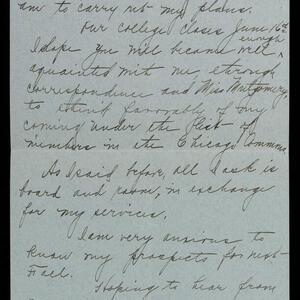 am to carry out my plans.
Our college closes June 16th
enough
I hope you will become well
aquainted with me through
correspondence and Miss Montgomery,
to think favorably of my
coming under the list of
members in the Chicago Commons.
As I said before, all I ask is
board and room, in exchange
for my services.
I am very anxious to
know my prospects for next
Fall.
Hoping to hear from